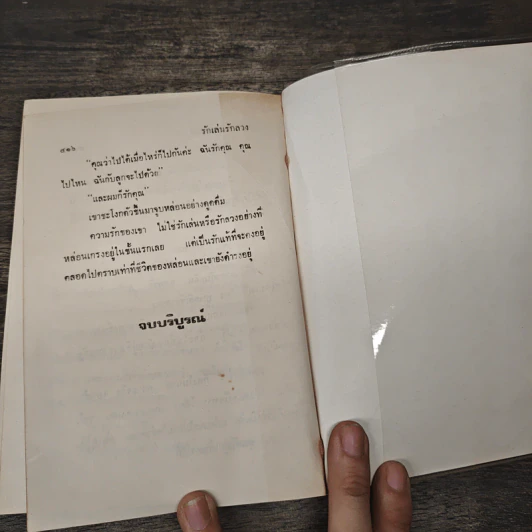 ๔๑๖
รักเล่นรักลวง
"คุณว่าไปได้เมื่อไหร่ก็ไปกันค่ะ ฉันรักคุณ คุณ
ไปไหน ฉันกับลูกจะไปด้วย"
"และผมก็รักคุณ"
เขาชะโงกตัวขึ้นมาจูบหล่อนอย่างดูดดื่ม
ความรักของเขา ไม่ใช่รักเล่นหรือรักลวงอย่างที่
หล่อนเกรงอยู่ในชั้นแรกเลย แต่เป็นรักแท้ที่จะคงอยู่
ตลอดไปตราบเท่าที่ชีวิตของหล่อนและเขายังดำรงอยู่
จบบริบูรณ์